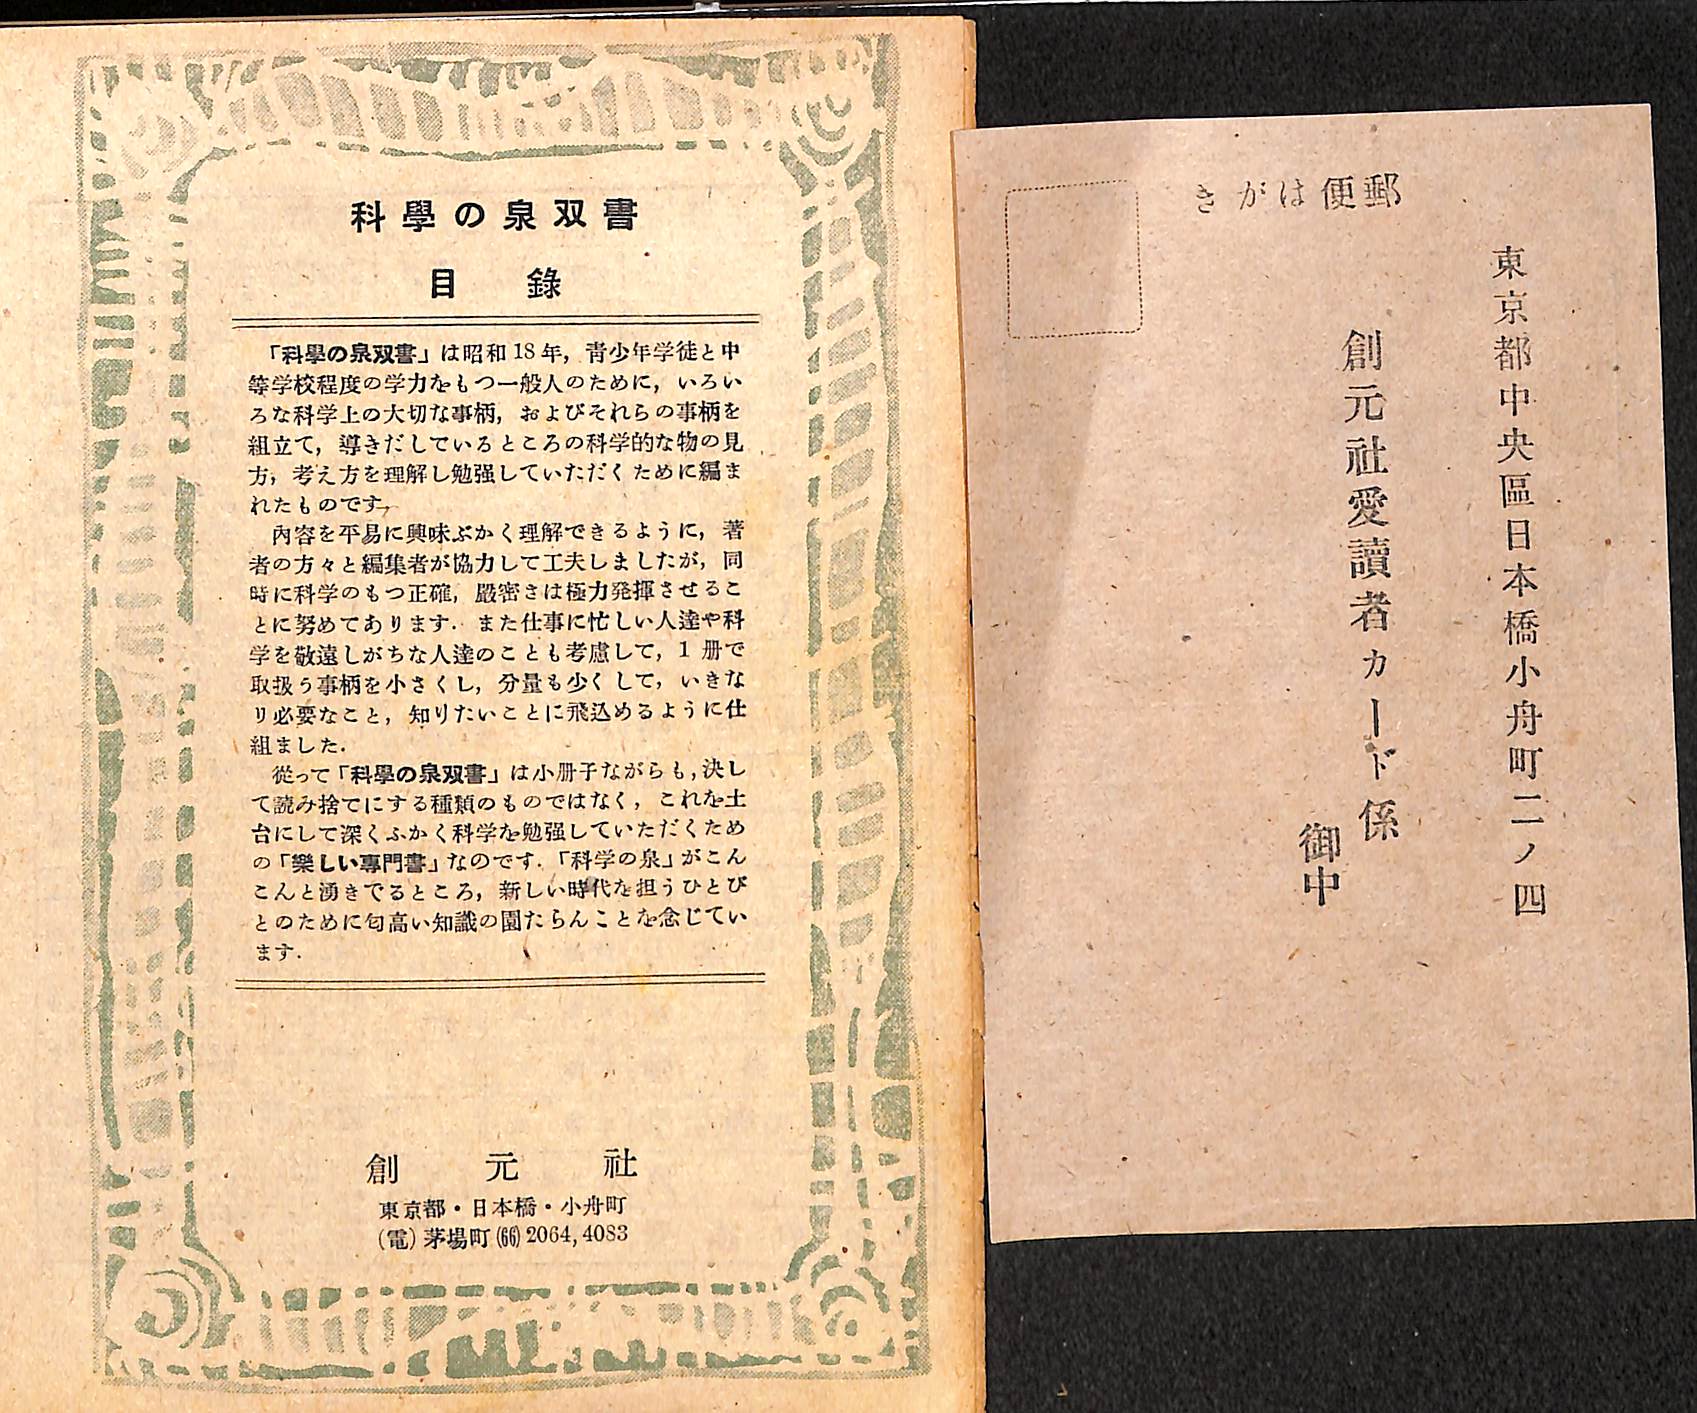 科學の泉双書
目錄
「科學の泉双書」は昭和18年，青少年学徒と中
等学校程度の学力をもつ一般人のために，いろい
ろな科学上の大切な事柄，およびそれらの事柄を
組立て，導きだしているところの科学的な物の見
方，考え方を理解し勉强していただくために編ま
れたものです．
内容を平易に興味ぶかく理解できるように，著
者の方々と編集者が協力して工夫しましたが，同
時に科学のもつ正確，嚴密さは極力発揮させるこ
とに努めてあります．また仕事に忙しい人達や科
学を敬遠しがちな人達のことも考慮して，1 册で
取扱う事柄を小さくし，分量も少くして，いきな
り必要なこと，知りたいことに飛込めるように仕
組ました．
從って「科學の泉双書」は小册子ながらも，決し
て読み捨てにする種類のものではなく，これを土
台にして深くふかく科学を勉强していただくため
の「樂しい專門書」なのです．「科学の泉」がこん
こんと湧きでるところ，新しい時代を担うひとび
とのために匂高い知識の園たらんことを念じてい
ます．
創元社
東京都・日本橋・小舟町
(電) 茅場町 (66) 2064, 4083
郵便はがき
東京都中央區日本橋小舟町二ノ四
創元社愛讀者カード係
御中